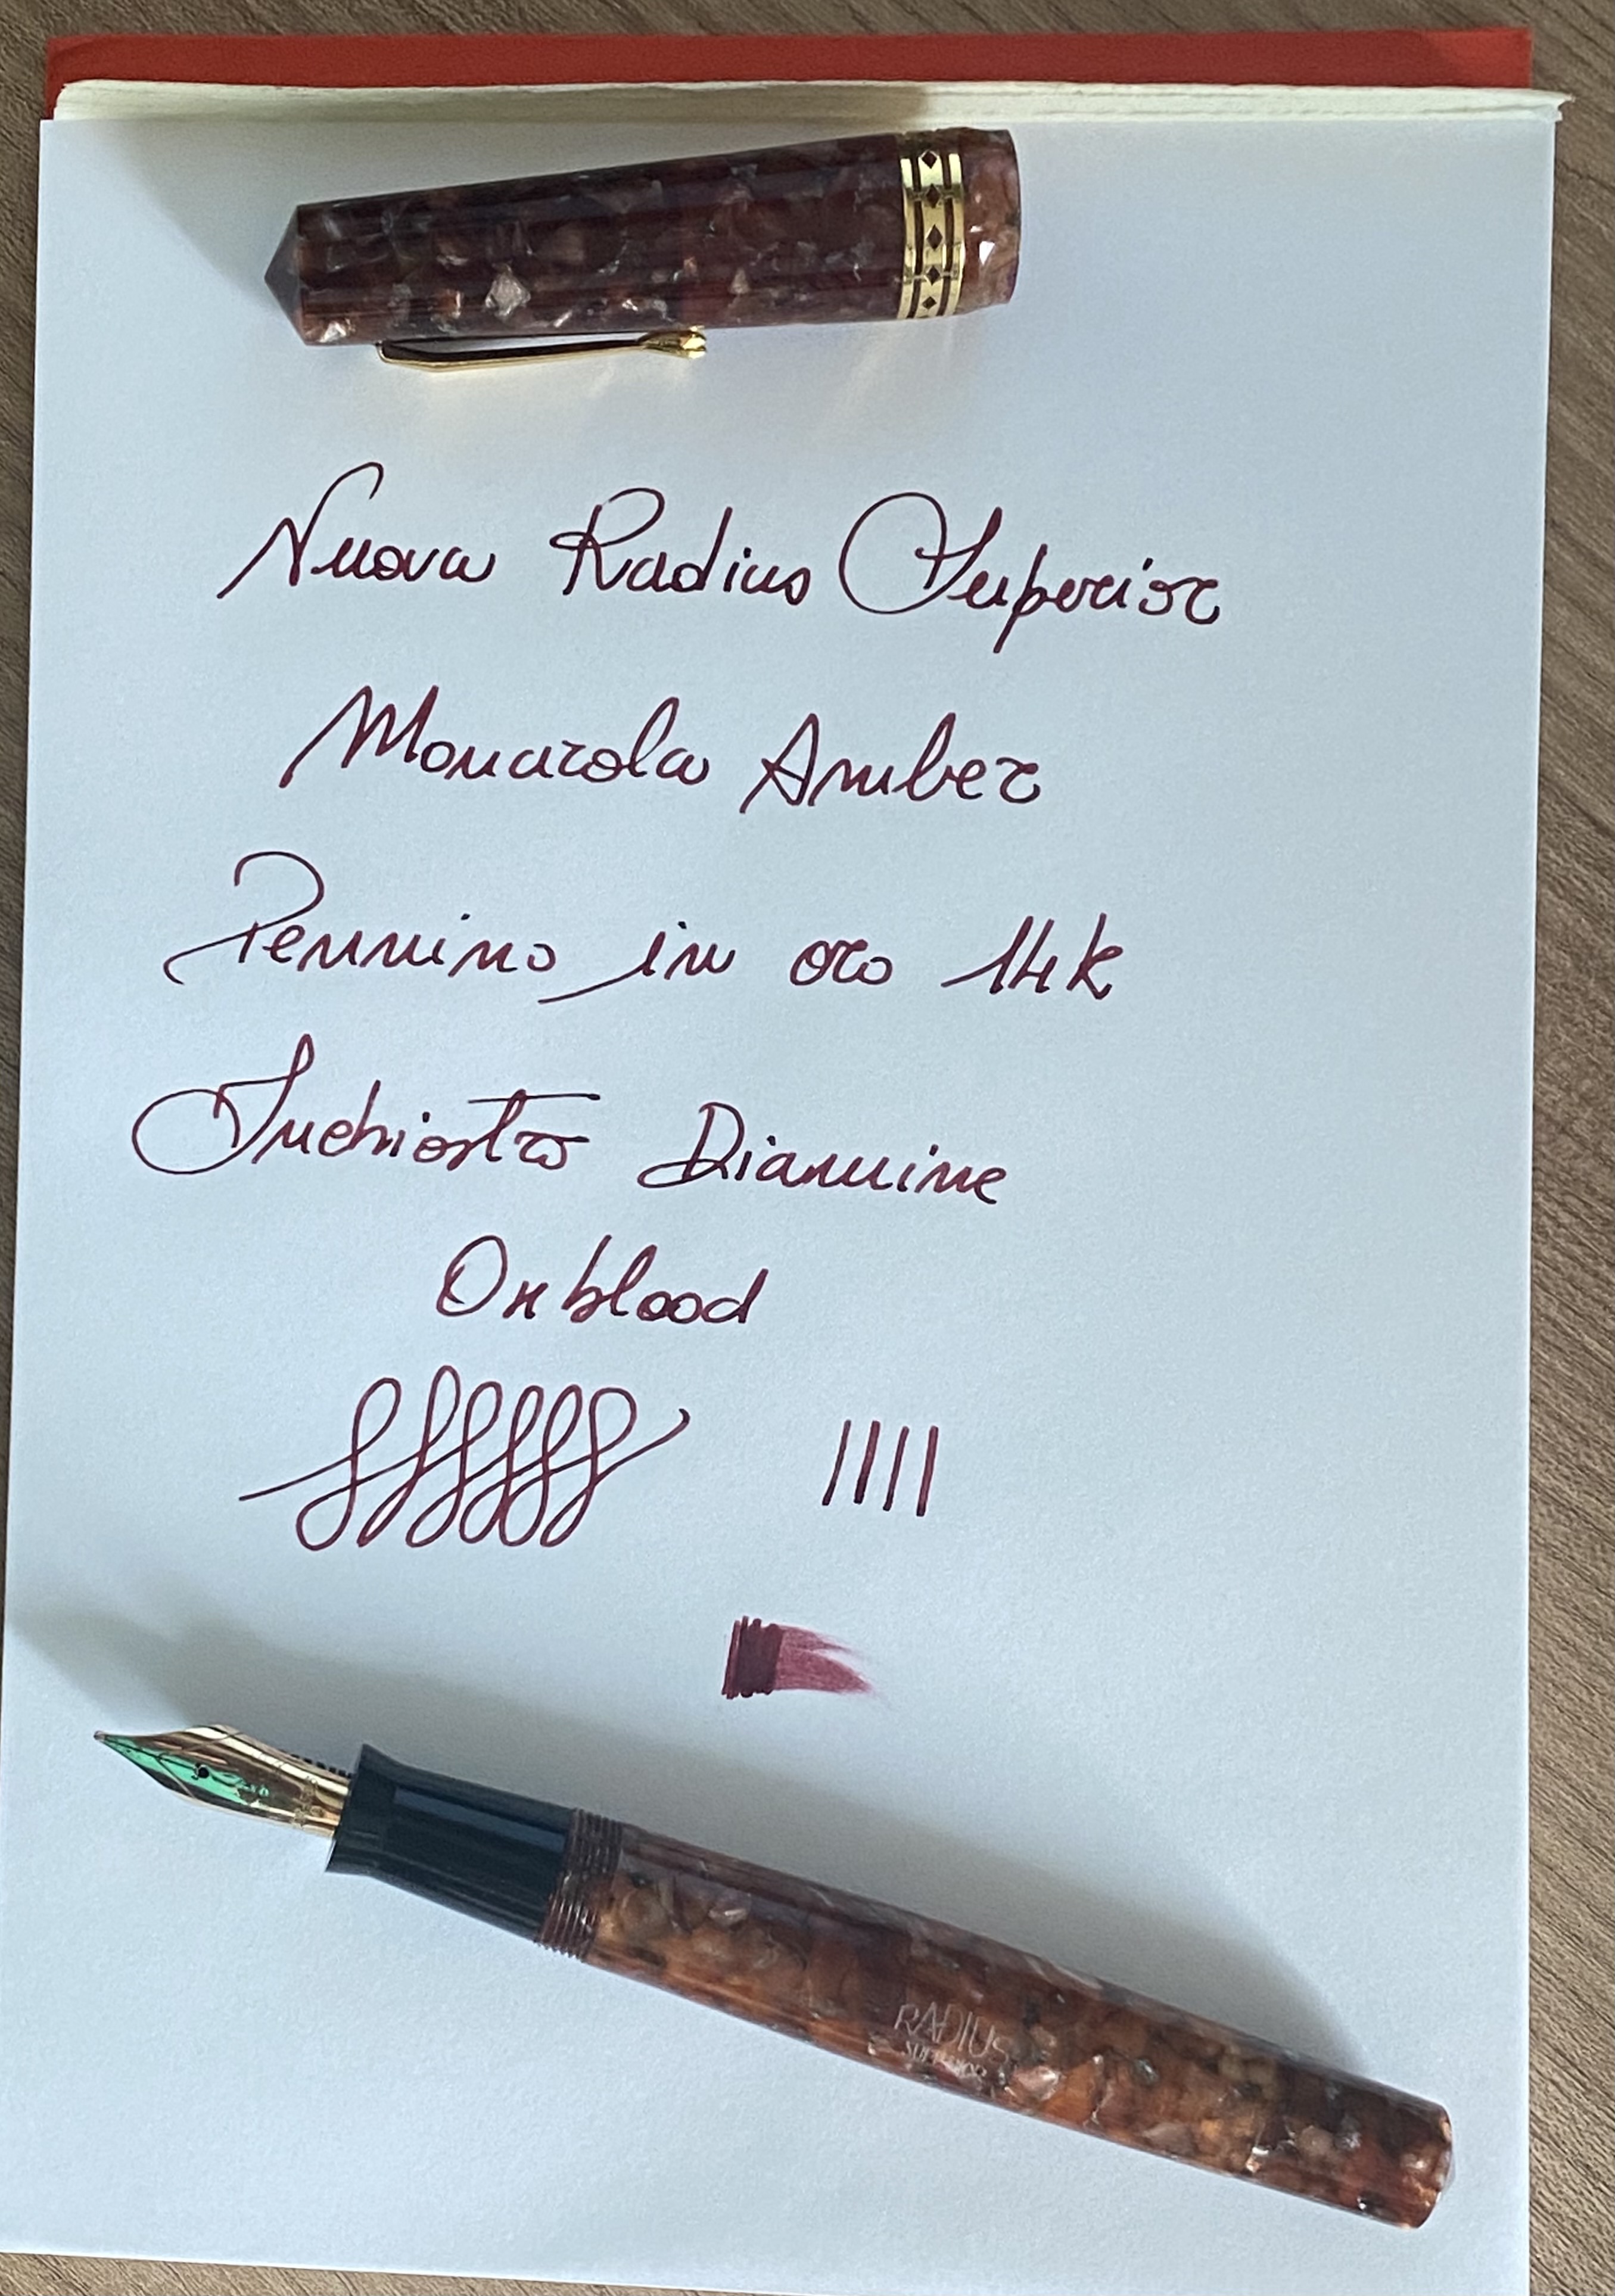 Nuova Radius Superior
Manarola Amber
Pennino in oro 14k
Inchiostro Diamine
Oxblood
RADIUS
SUPERIOR